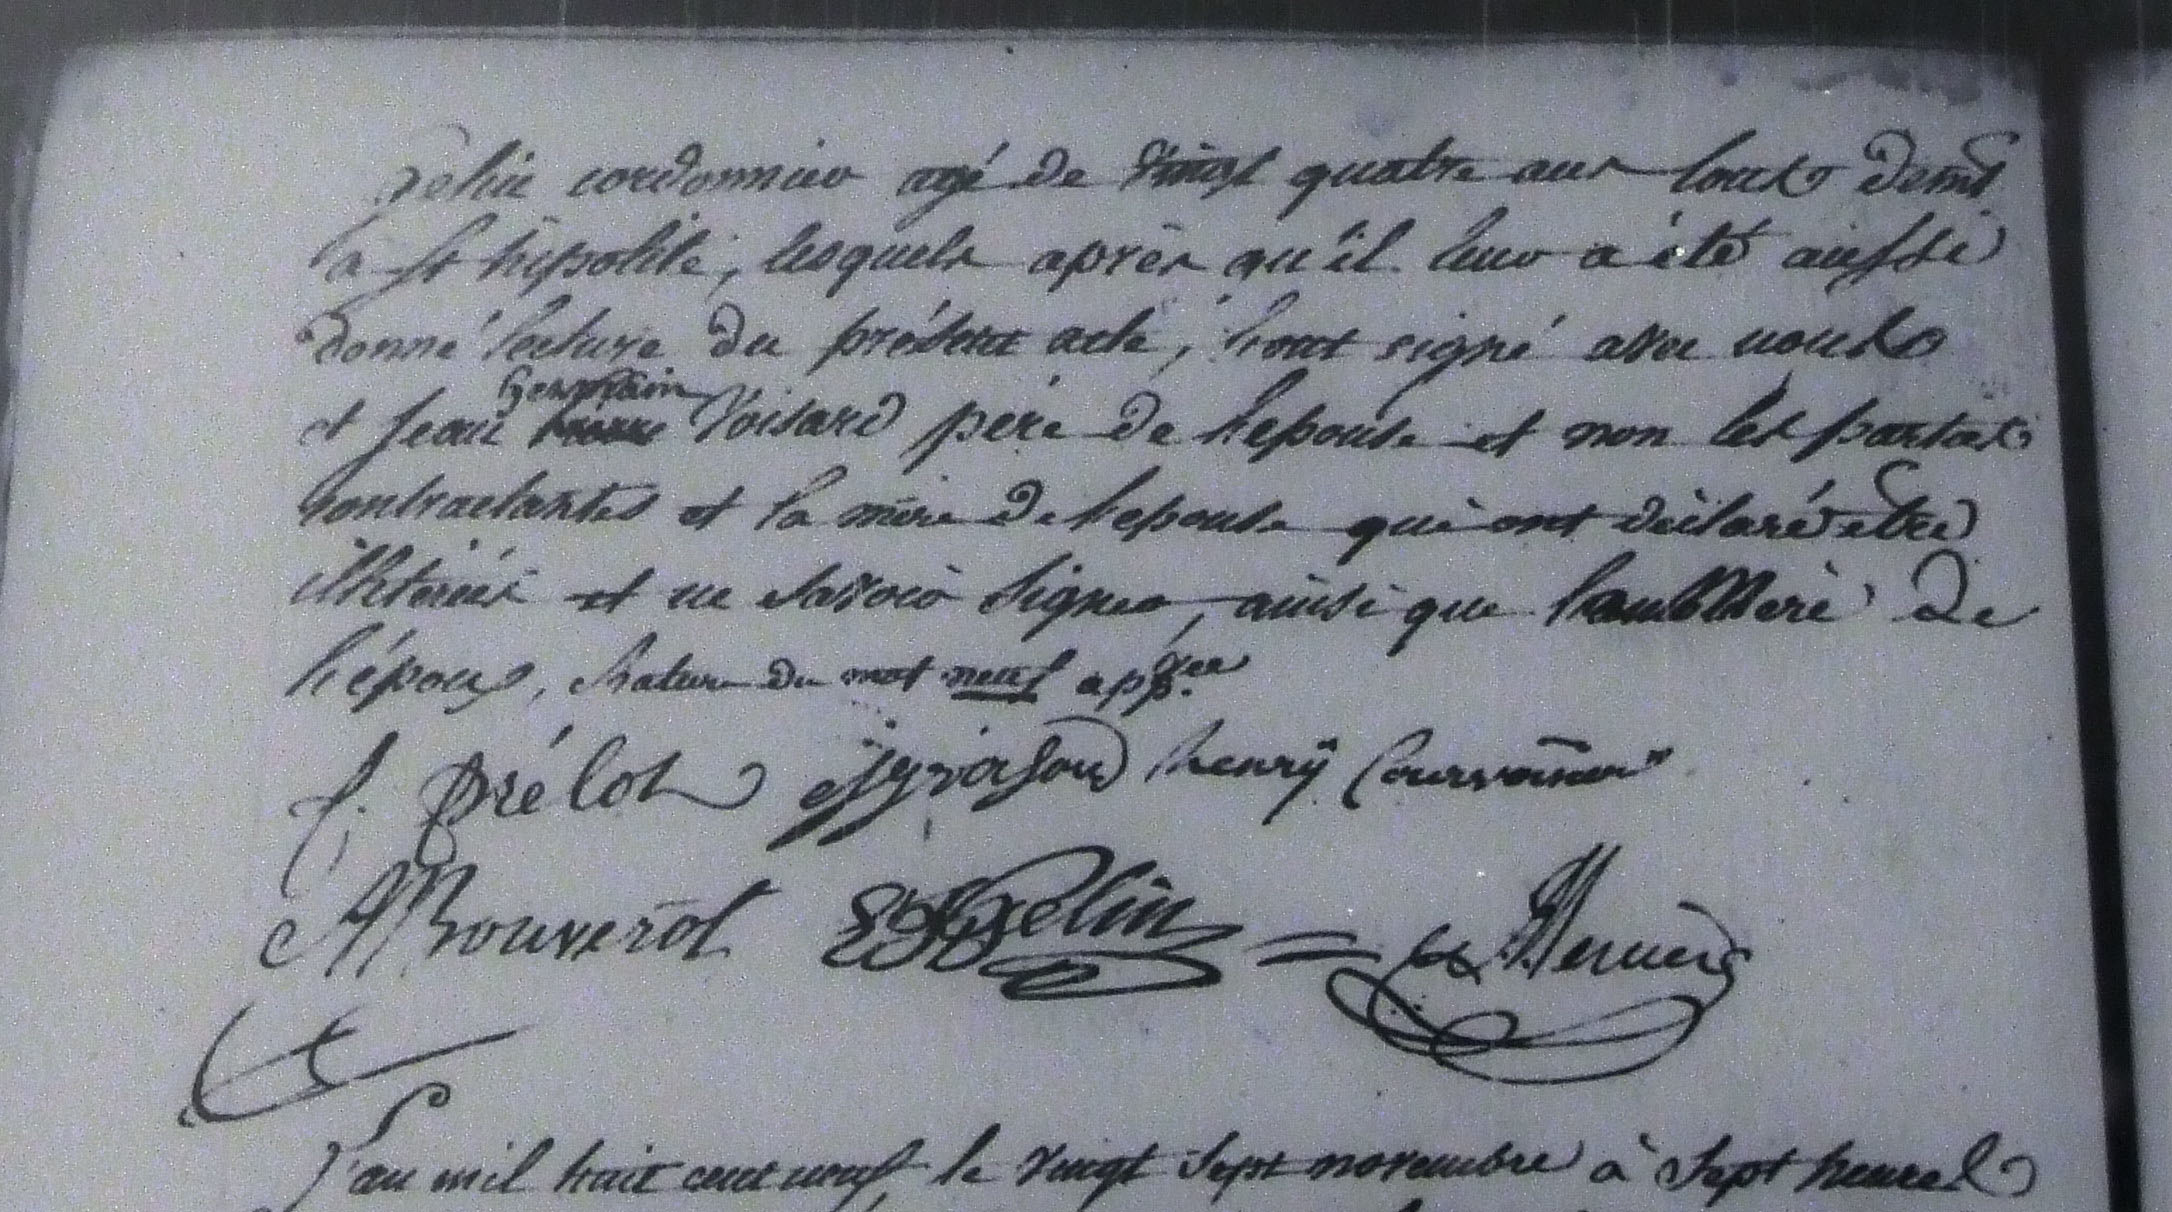 Pelin cordonnier agé de vingt quatre ans tous domt
à st hipolite, lesquels après qu'il leur a été aussi
donné lecture du présent acte, l'ont signé avec nous
Germain
et Jean Voisard père de l'epouse et non les parties
contractantes et la mère de l'epouse qui ont déclaré etre
illiterés et ne savoir signer, ainsi que la mere de
l'épous, rature du mot neuf appvée
f. Prélot Henrÿ Courvoisier
Bouverot Pelin Mercier
L'an mil huit cent neuf, le vingt sept novembre à sept heures